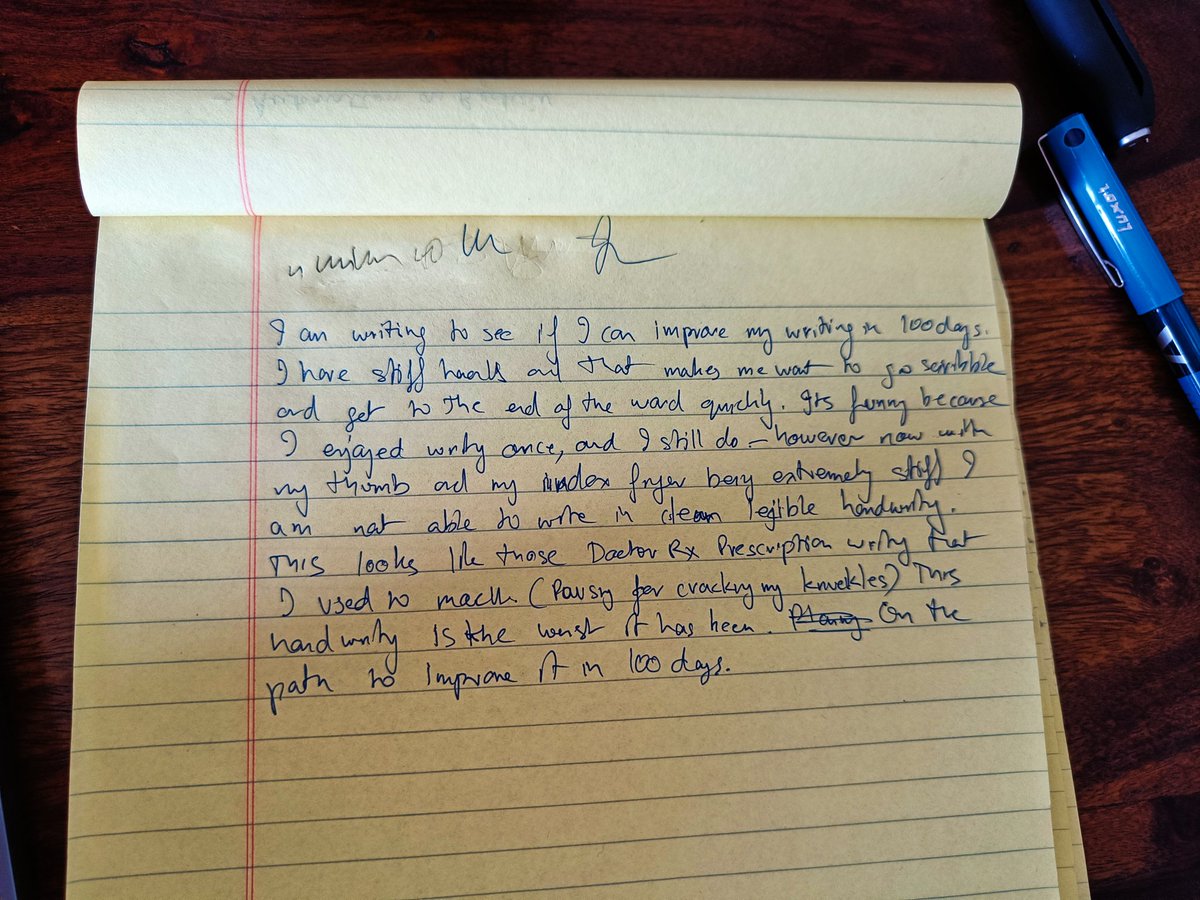 I am writing to see if I can improve my writing in 100 days.
I have stiff hands and that makes me want to go scribble
and get to the end of the word quickly. Its funny because
I enjoyed writing once, and I still do – however now with
my thumb and my index finger being extremely stiff I
am not able to write in clean legible handwriting.
This looks like those Doctor Rx Prescription writing that
I used to mock. (Pausing for cracking my knuckles) This
handwriting is the worst it has been. On the
path to improve it in 100 days.
LUXOR